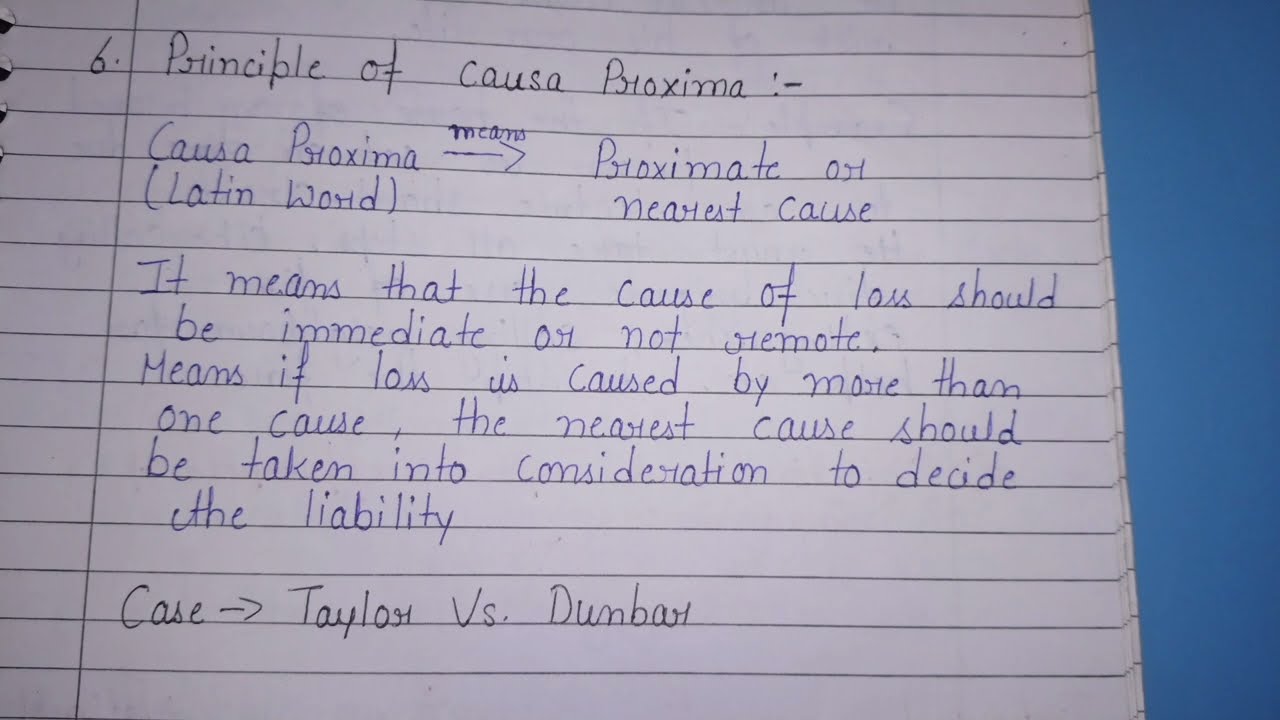 6. Principle of Causa Proxima :-
means
Causa Proxima → Proximate or
(Latin Word) nearest cause
It means that the cause of loss should
be immediate or not remote.
Means if loss is caused by more than
one cause, the nearest cause should
be taken into consideration to decide
the liability
Case → Taylor Vs. Dunbar